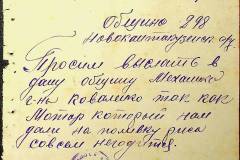 Общино 298
Новокантакузенск с/х
Просим выслать в
дашу общину Механика
г-на Коваленко так как
Мотар который нам
дали на поливку риса
совсем негодится.